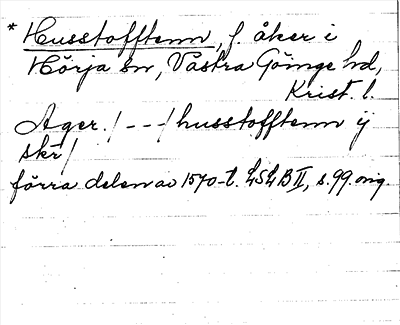 * Husstofftenn, f. åker i
Hörja sn, Västra Göinge hd,
Krist. l.
Ager. /---/ husstofftenn ij
skr /
förra delen av 1570-t. LSLB II, s. 99. orig.